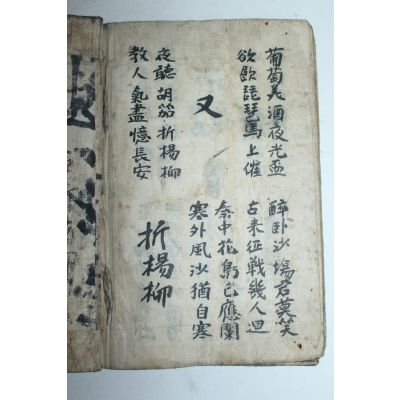 葡萄美酒夜光盃
欲飲琵琶馬上催
醉臥沙場君莫笑
古來征戰幾人迴
又
秦中花鳥已應闌
塞外風沙猶自寒
夜聽胡笳折楊柳
教人氣盡憶長安
折楊柳